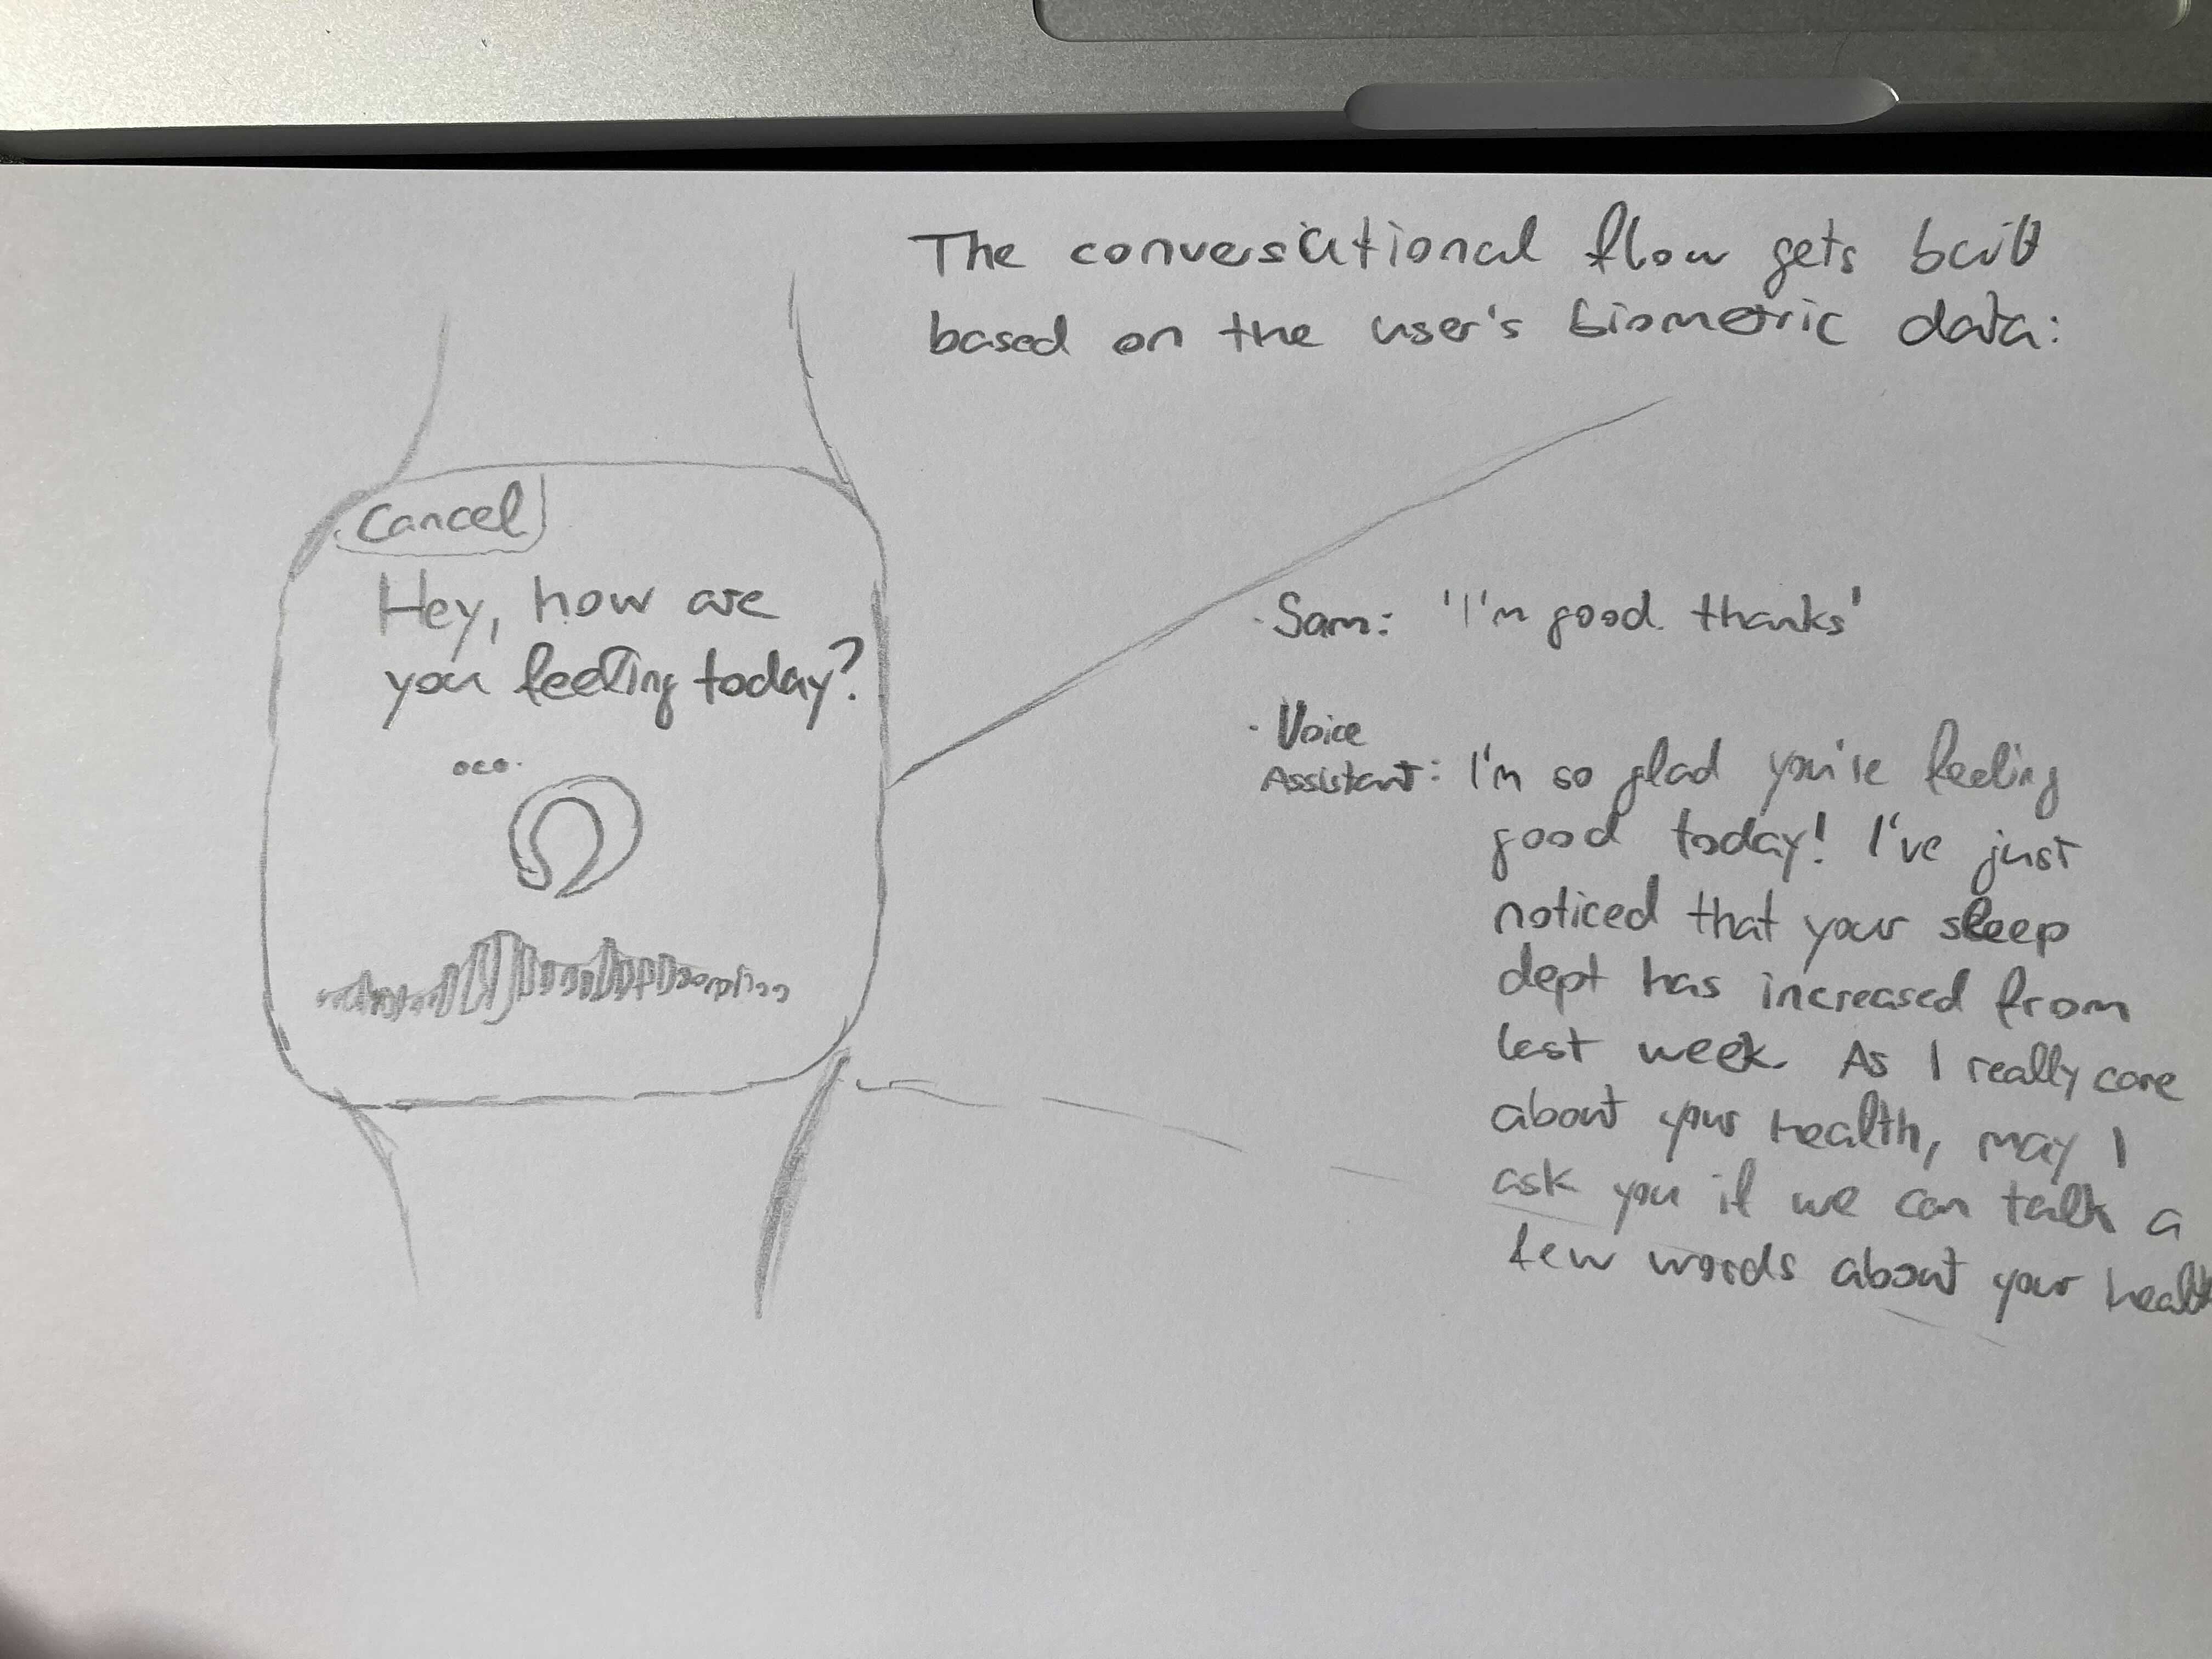 The conversational flow gets built
based on the user's biometric data:
Cancel
Hey, how are
you feeling today?
...
· Sam: 'I'm good thanks'
· Voice
Assistant: I'm so glad you're feeling
good today! I've just
noticed that your sleep
dept has increased from
last week. As I really care
about your health, may I
ask you if we can talk a
few words about your health